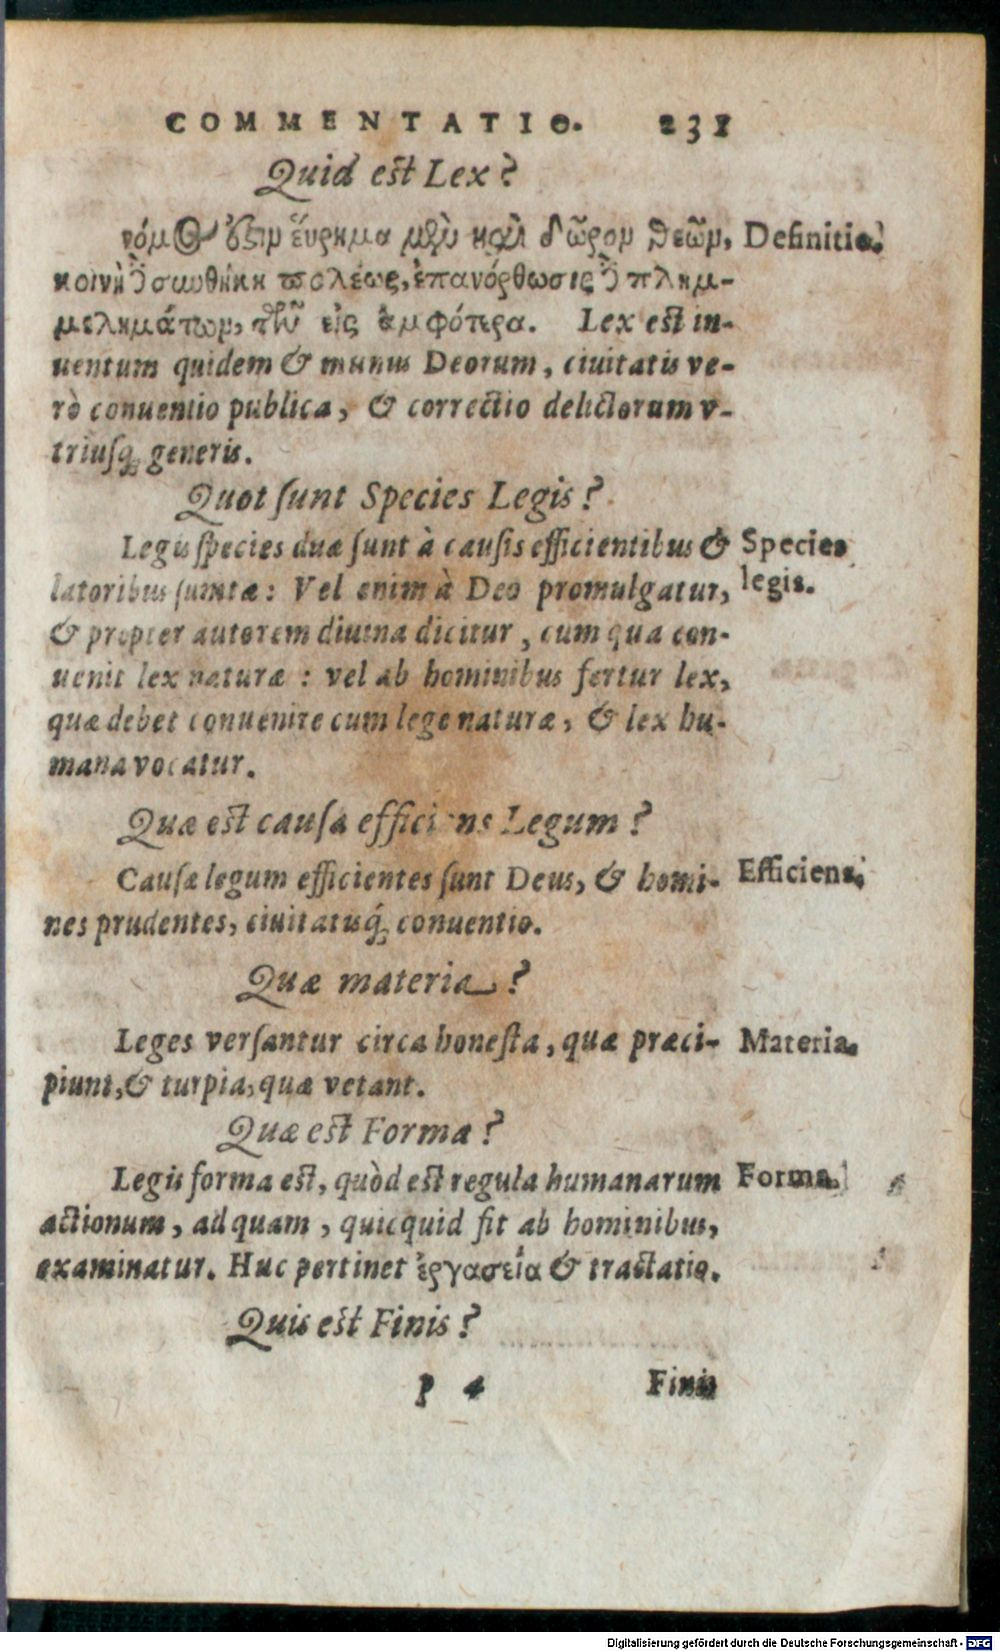 COMMENTATIO. 231
Quid est Lex?
νόμος ὅστιν ἕυρημα μὲν καὶ δῶρον θεῶν, Definitio.
κοινὴ δὲ συνθήκη πολέως, ἐπανόρθωσις δὲ πλημ-
μελημάτων, τῶν εἰς ἀμφότερα. Lex est in-
uentum quidem & munus Deorum, ciuitatis ve-
rò conuentio publica, & correctio delictorum v-
triusq; generis.
Quot sunt Species Legis?
Legis species duæ sunt à causis efficientibus & Species
latoribus sumtæ: Vel enim à Deo promulgatur, legis.
& propter autorem diuina dicitur, cum qua con-
uenit lex naturæ: vel ab hominibus fertur lex,
quæ debet conuenire cum lege naturæ, & lex hu-
mana vocatur.
Quæ est causa efficiens Legum?
Causæ legum efficientes sunt Deus, & homi- Efficiens.
nes prudentes, ciuitatisq́; conuentio.
Quæ materia?
Leges versantur circa honesta, quæ præci- Materia.
piunt, & turpia, quæ vetant.
Quæ est Forma?
Legis forma est, quòd est regula humanarum Forma.
actionum, ad quam, quicquid fit ab hominibus,
examinatur. Huc pertinet ἐργασεία & tractatio.
Quis est Finis?
p 4 Finis
Digitalisierung gefördert durch die Deutsche Forschungsgemeinschaft - DFG